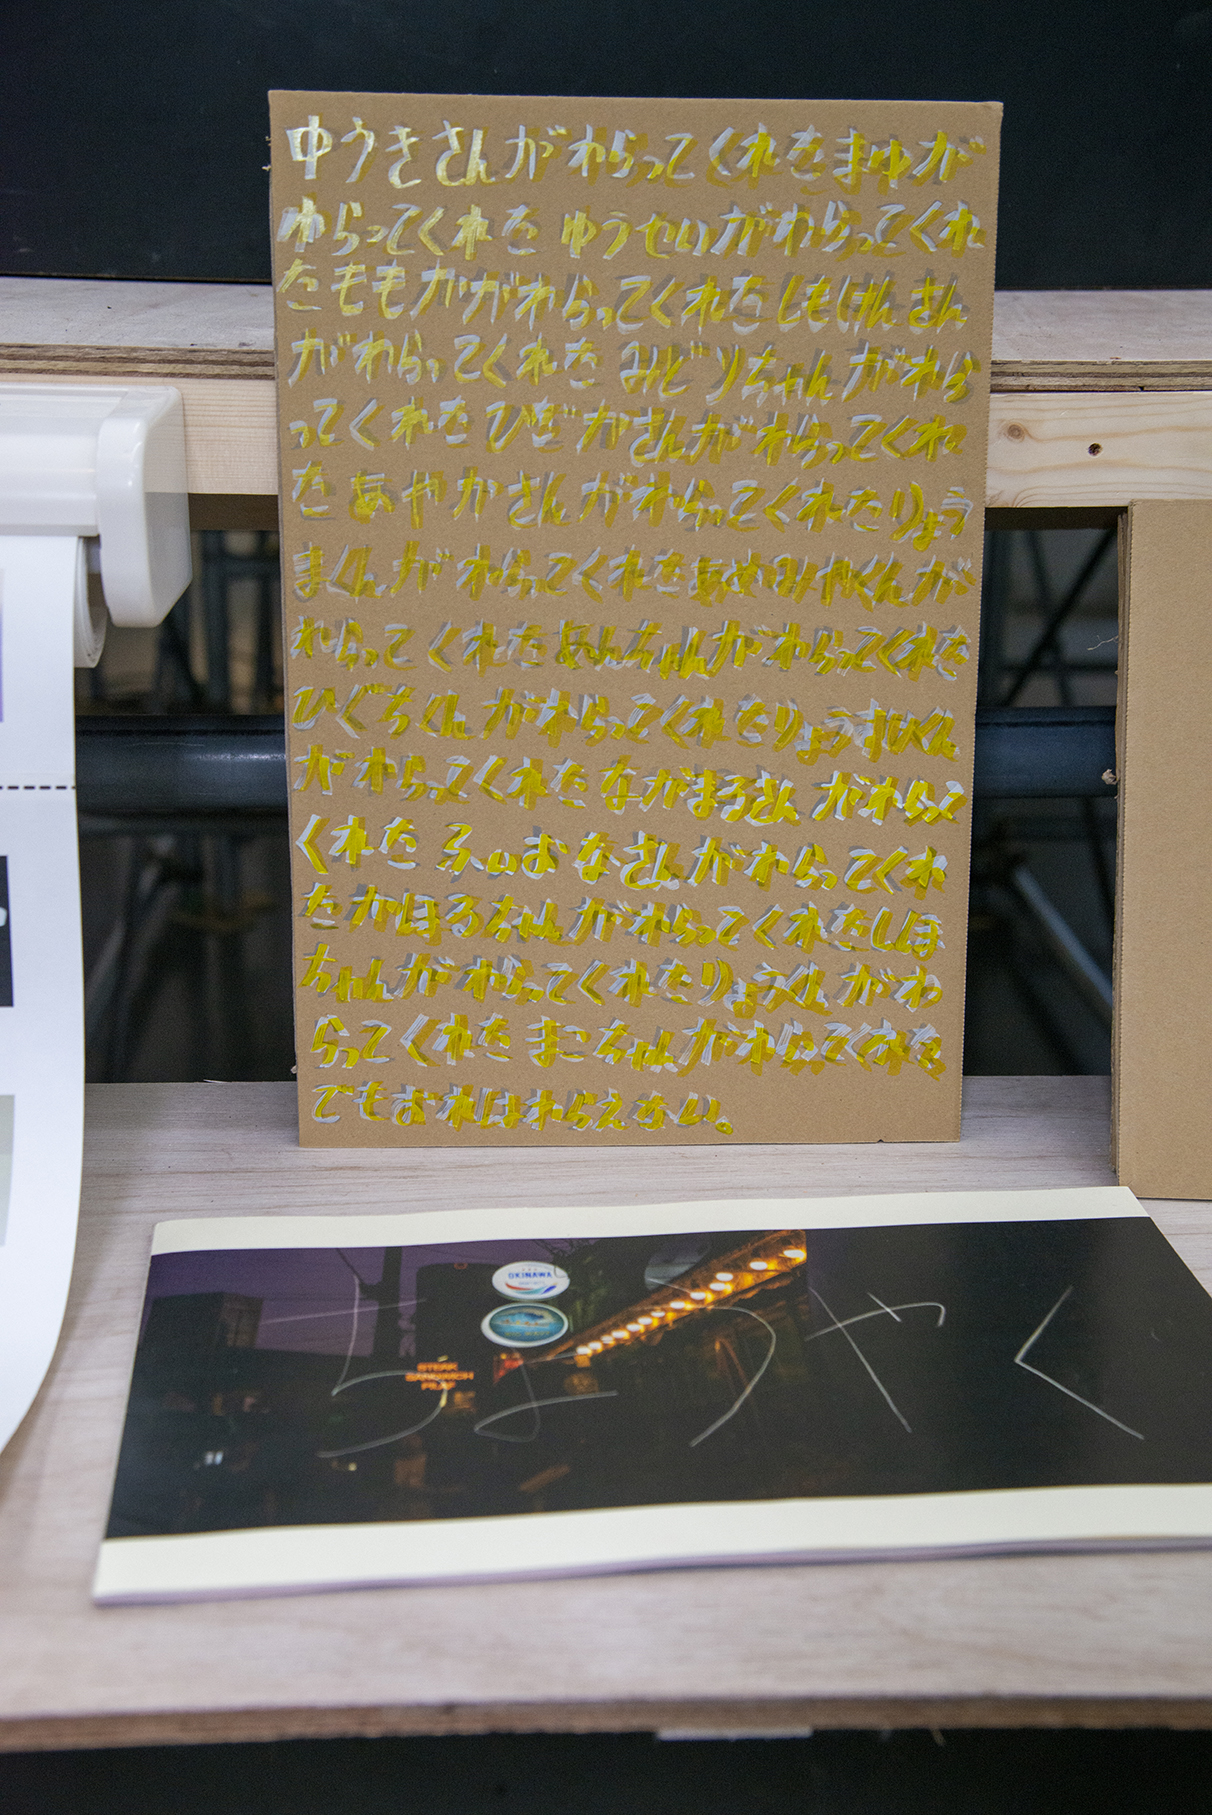 ゆうきさんがわらってくれたまゆが
わらってくれた ゆうせいがわらってくれ
たももかがわらってくれたしもけんさん
がわらってくれた みどりちゃんがわら
ってくれたひざかさんがわらってくれ
たあやかさんがわらってくれたりょう
まくんがわらってくれたあめみやくんが
わらってくれたあんちゃんがわらってくれた
ひぐちくんがわらってくれたりょうすけくん
がわらってくれたながまるさんがわらって
くれた ふぃおなさんがわらってくれ
たかほるちゃんがわらってくれたしほ
ちゃんがわらってくれたりょうくんがわ
らってくれたまこちゃんがわらってくれた
でもおれはわらえない。
OKINAWA
STEAK
SANDWICH
PILAF